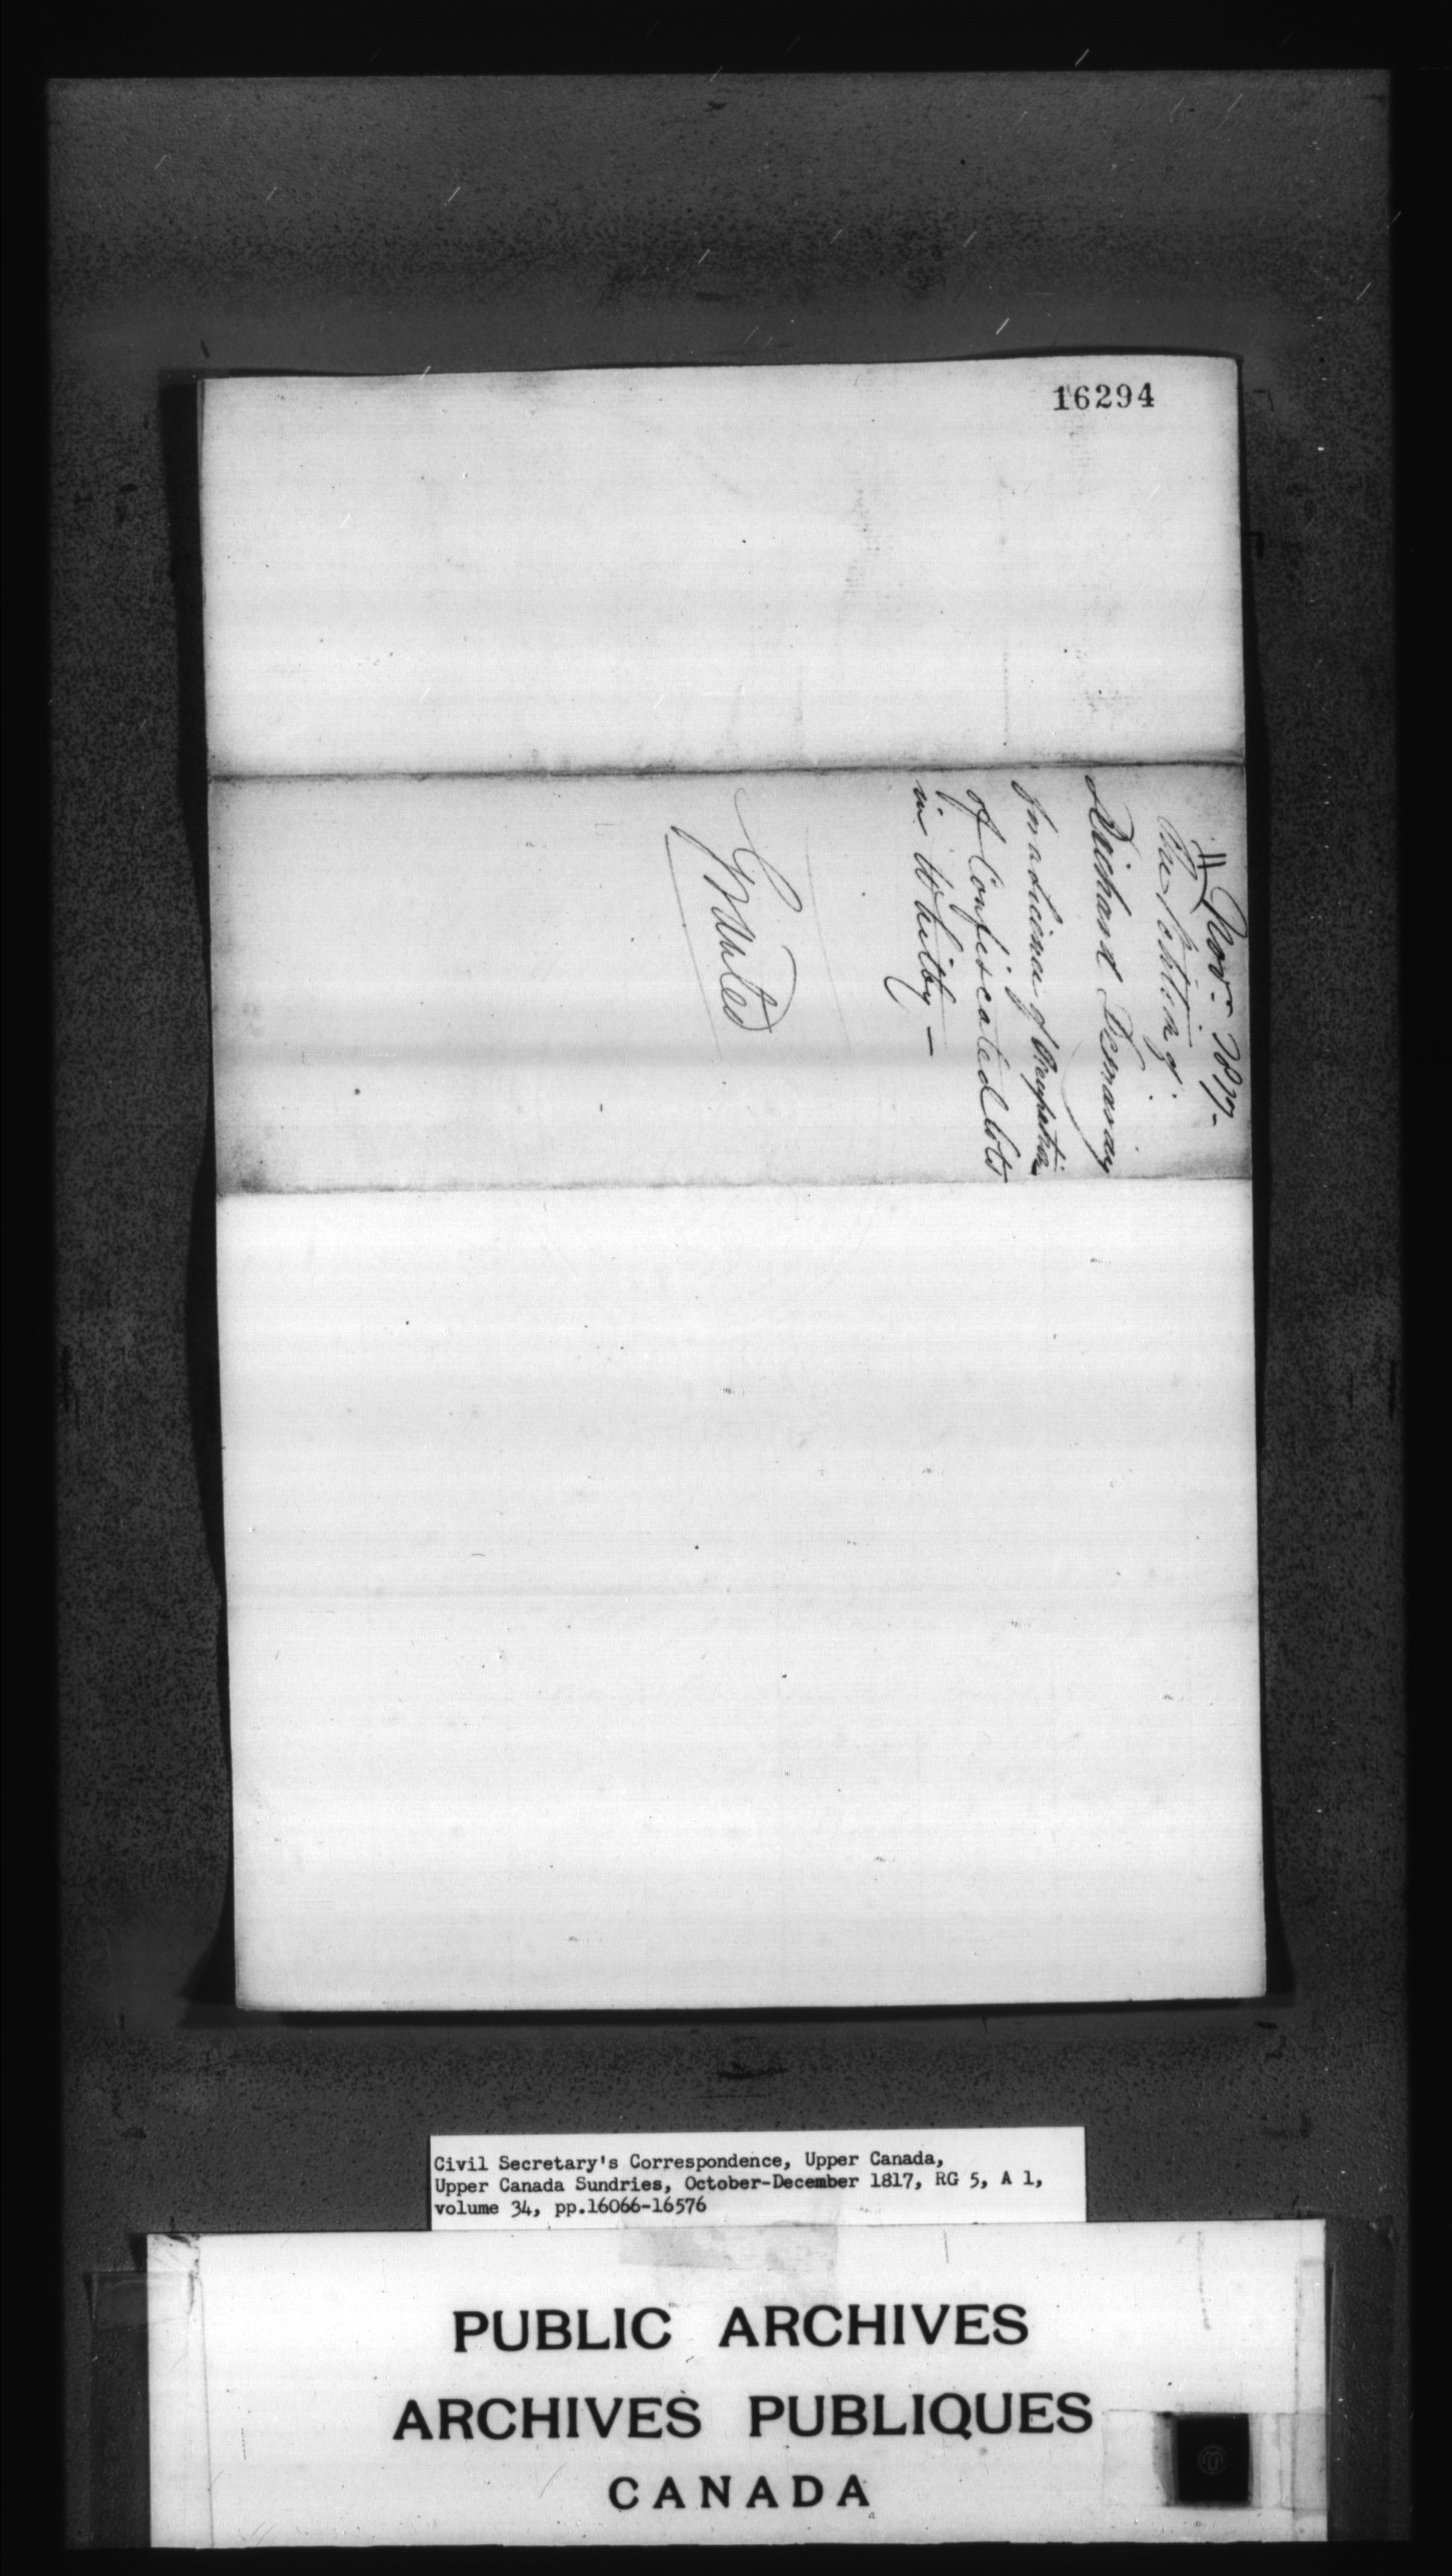 16294
Novr. 1817.
Petition of
Richard Demaray
for a licence of Occupation
of Confiscated lots
in Whitby —
Granted
Civil Secretary's Correspondence, Upper Canada,
Upper Canada Sundries, October-December 1817, RG 5, A 1,
volume 34, pp.16066-16576
PUBLIC ARCHIVES
ARCHIVES PUBLIQUES
CANADA